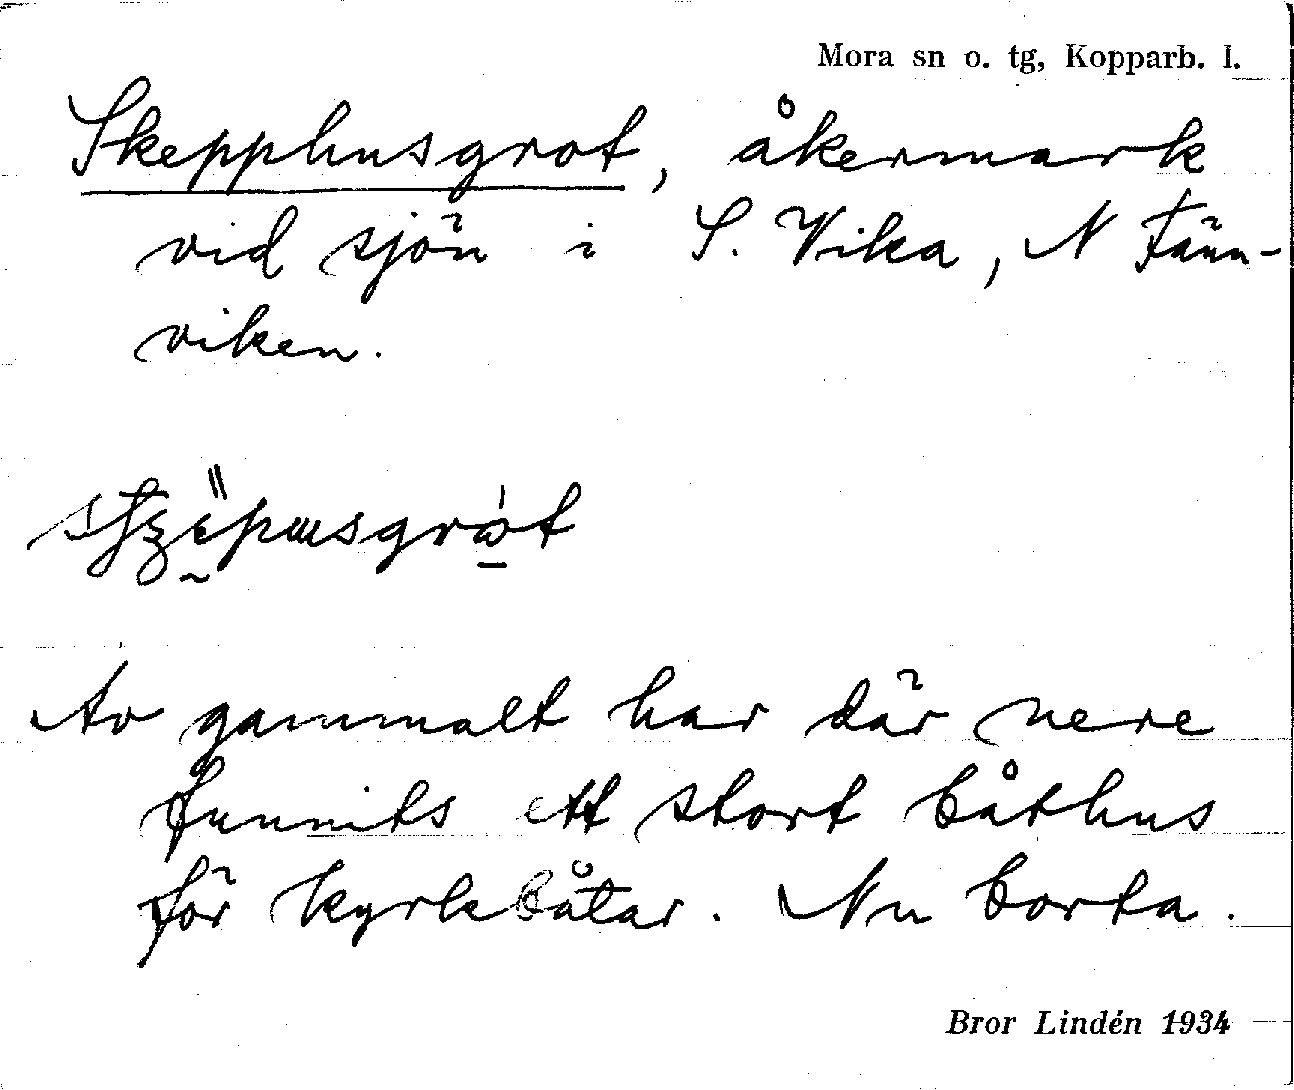 Mora sn o. tg, Kopparb. l.
Skepphusgrot, åkermark
vid sjön i S. Vika, N Fänn-
viken.
Av gammalt har där nere
funnits ett stort båthus
för kyrkbåtar. Nu borta.
Bror Lindén 1934